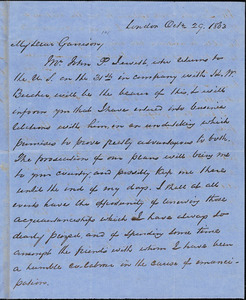 London Oct. 29. 1863
My dear Garrison,
Mr. John P. Jewett, who returns to
the U.S. on the 31st in company with H. W.
Beecher, will be the bearer of this, & will
inform you that I have entered into business
relations with him, on an undertaking which
promises to prove greatly advantageous to both.
The prosecution of our plans will bring me
to your country, and possibly keep me there
until the end of my days. I shall at all
events have the opportunity of renewing those
acquaintanceships which I have always so
dearly prized, and of spending some time
amongst the friends with whom I have been
a humble colaborer in the cause of emanci-
pation.